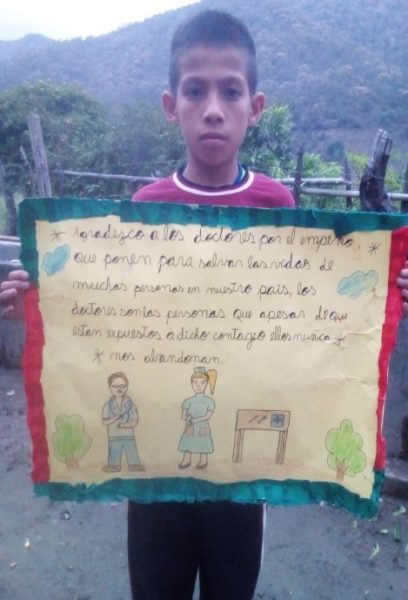 * Agradezco a los doctores por el empeño *
que ponen para salvar las vidas de
muchas personas en nuestro pais, los
doctores son las personas que apesar de que
estan expuestos a dicho contagio ellos nunca *
* nos abandonan.